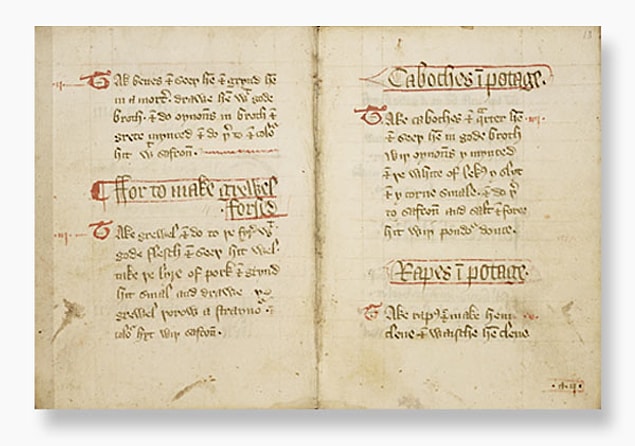 ·ii· Tak benes & seeþ he & grynd he
in a morť. drawe he w gode
broth. & do oynons in broth &
grete mynced & do þ to & coloʳ
hit w safron.
ffor to make grewel
forsed
·iii· Take grewel & do to þe fyr w
gode flesch & seeþ hit wel.
take þe lyre of pork & grynd
hit smal and drawe þe
grewel þorow a straynoʳ &
coloʳ hit wiþ safron.
13
Caboches ī potage.
Take caboches & qrter he ·iiii·
& seeþ he in gode broth
wiþ oynons y mynced
& þe white of lek y slyt
& y corue smale. & do þ
to safron and salt & force
hit wiþ poudʳ douce.
Rapes ī potage.
Take rap & make hem ·v·
clene & waische he clene